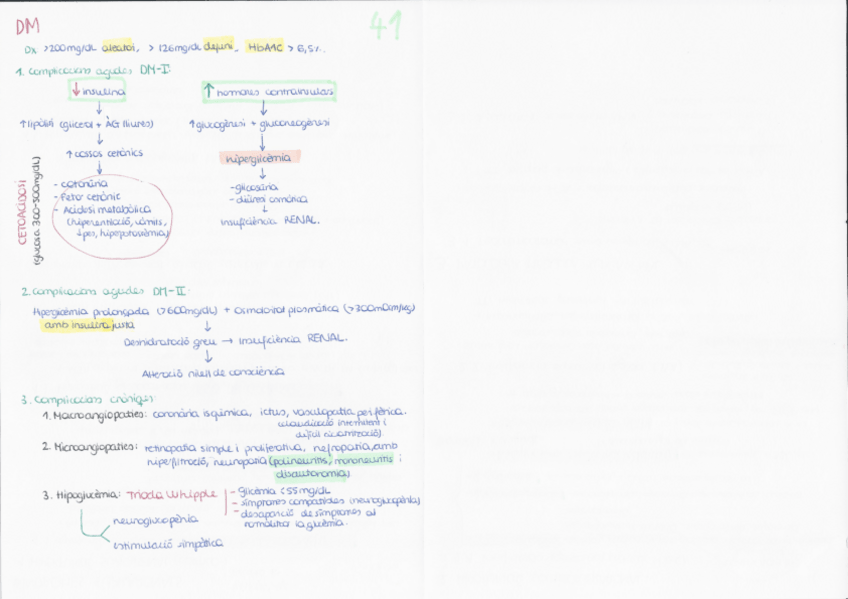 DM
41
Dx >200mg/dL aleatori, >126mg/dL dejuni, HbA1C > 6,5%.
1. Complicacions agudes DM-I:
↓ insulina
↑ hormones contrainsulars
↑ lipòlisi (glicerol + ÀG lliures)
↑ glucogènesi + gluconeogènesi
↑ cossos cetònics
hiperglicèmia
CETOACIDOSI
(glucosa 300-500mg/dL)
- cetonúria
- Fetor cetònic
- Acidosi metabòlica
(hiperventilació, vòmits,
↓ pes, hiperpotassèmia)
- glicosúria
- diüresi osmòtica
↓
insuficiència RENAL.
2. Complicacions agudes DM-II:
Hiperglicèmia prolongada (>600mg/dL) + Osmolaritat plasmàtica (>300mOsm/kg)
amb insulina justa
Deshidratació greu → Insuficiència RENAL.
Alteració nivell de consciència
3. Complicacions cròniques:
1. Macroangiopaties: coronària isquèmica, ictus, vasculopatia perifèrica.
(claudicació intermitent i
dèficit cicatrització)
2. Microangiopaties: retinopatia simple i proliferativa, nefropatia, amb
hiperfiltració, neuropatia (polineuritis, mononeuritis i
disautonomia)
3. Hipoglicèmia: Triada Whipple
- Glicèmia <55mg/dL
- símptomes compatibles (neuroglucopènia)
- desaparició de símptomes al
normalitzar la glicèmia.
neuroglucopènia
estimulació simpàtica